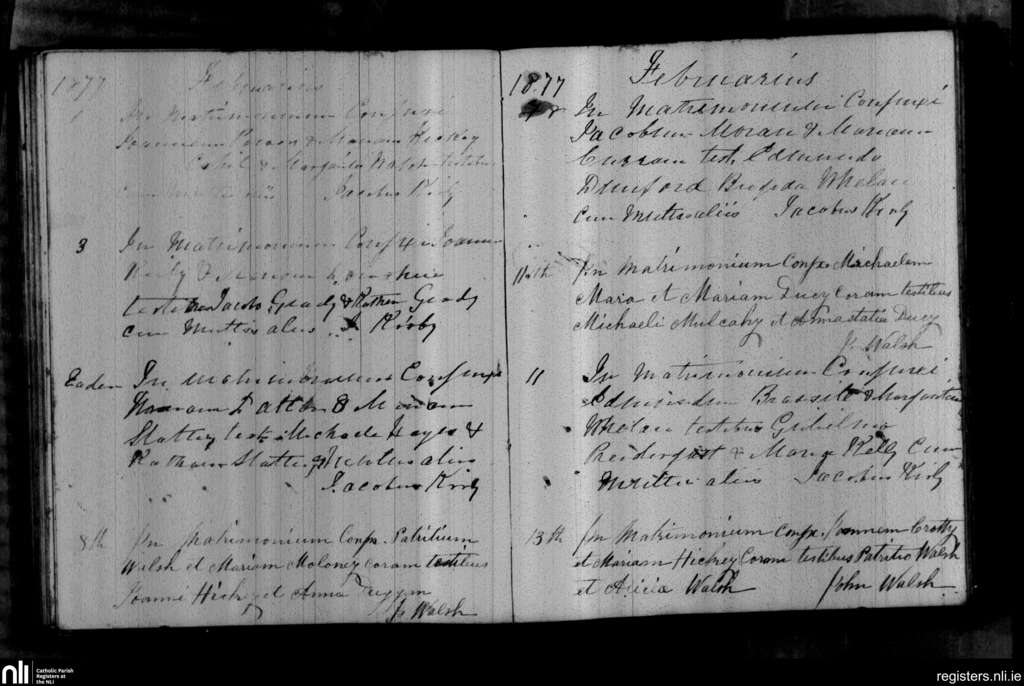 1877 Februarius
1 In Matrimonium Conjunxi
Joannem Power & Mariam Hickey
& Margarita Walsh testibus
cum multis aliis Jacobus Kirby
3 In Matrimonium Conjunxi Joannem
Reily & Mariam
testibus Jacobo Grady & Kathrn Grady
cum multis aliis J Kirby
Eadem In Matrimonium Conjunxi
Dalton & Mariam
Slattery test. Michaele Hayes &
Katharn Slattery & multis aliis
Jacobus Kirby
8th In Matrimonium Conjx. Patritium
Walsh et Mariam Moloney coram testibus
Joanni Hickey et Anna
J. Walsh
1877 Februarius
In Matrimonium Conjunxi
Jacobum Moran & Mariam
Curran test. Edmundo
Dunford Brigida Whelan
cum multis aliis Jacobus Kirby
11th In Matrimonium Conjx. Michaelem
Mara et Mariam Ducy Coram testibus
Michaeli Mulcahy et Annastatia Ducy
J. Walsh
11 In Matrimonium Conjunxi
Edmundum & Margaritam
Whelan testibus Gulielmo
Prendergast & Maria Kelly Cum
multis aliis Jacobus Kirby
13th In Matrimonium Conjx. Joannem Crotty
et Mariam Hickey Coram testibus Patritio Walsh
et Alicia Walsh John Walsh
nli Catholic Parish
Registers at
the NLI
registers.nli.ie